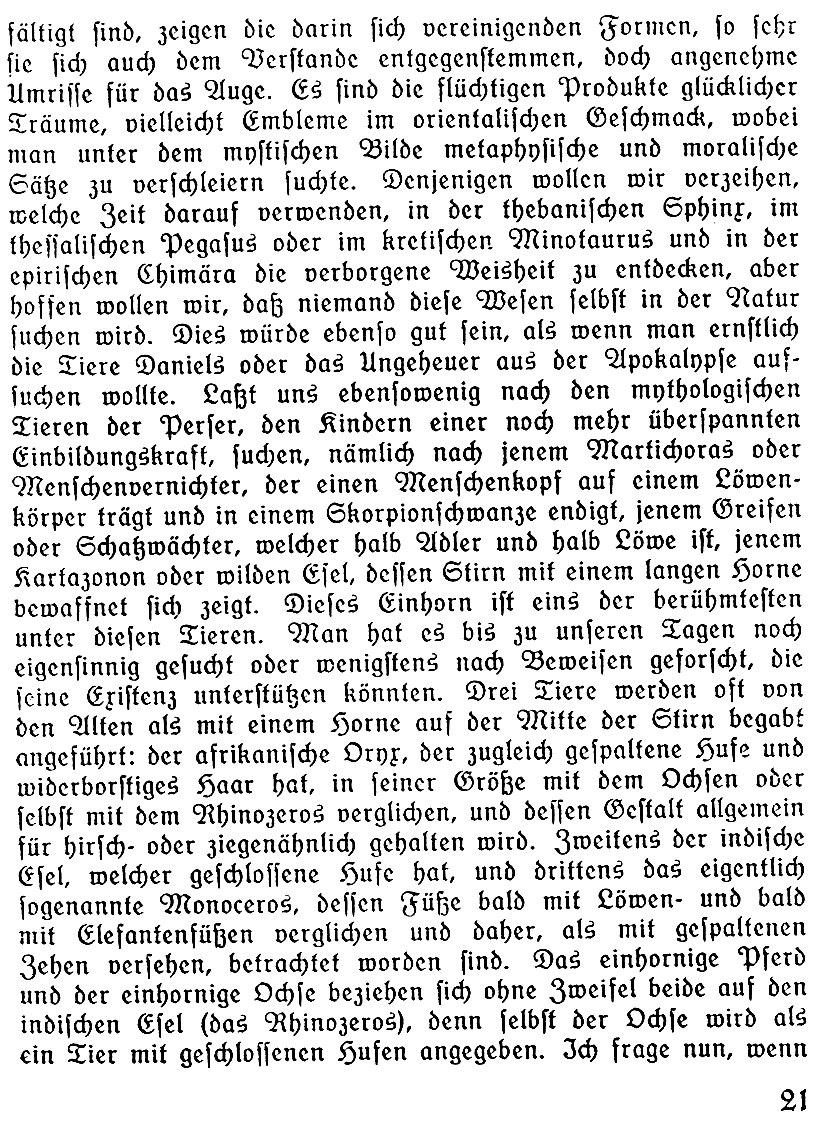 fältigt sind, zeigen die darin sich vereinigenden Formen, so sehr
sie sich auch dem Verstande entgegenstemmen, doch angenehme
Umrisse für das Auge. Es sind die flüchtigen Produkte glücklicher
Träume, vielleicht Embleme im orientalischen Geschmack, wobei
man unter dem mystischen Bilde metaphysische und moralische
Sätze zu verschleiern suchte. Denjenigen wollen wir verzeihen,
welche Zeit darauf verwenden, in der thebanischen Sphinx, im
thessalischen Pegasus oder im kretischen Minotaurus und in der
epirischen Chimära die verborgene Weisheit zu entdecken, aber
hoffen wollen wir, daß niemand diese Wesen selbst in der Natur
suchen wird. Dies würde ebenso gut sein, als wenn man ernstlich
die Tiere Daniels oder das Ungeheuer aus der Apokalypse auf-
suchen wollte. Laßt uns ebensowenig nach den mythologischen
Tieren der Perser, den Kindern einer noch mehr überspannten
Einbildungskraft, suchen, nämlich nach jenem Martichoras oder
Menschenvernichter, der einen Menschenkopf auf einem Löwen-
körper trägt und in einem Skorpionschwanze endigt, jenem Greifen
oder Schatzwächter, welcher halb Adler und halb Löwe ist, jenem
Kartazonon oder wilden Esel, dessen Stirn mit einem langen Horne
bewaffnet sich zeigt. Dieses Einhorn ist eins der berühmtesten
unter diesen Tieren. Man hat es bis zu unseren Tagen noch
eigensinnig gesucht oder wenigstens nach Beweisen geforscht, die
seine Existenz unterstützen könnten. Drei Tiere werden oft von
den Alten als mit einem Horne auf der Mitte der Stirn begabt
angeführt: der afrikanische Oryx, der zugleich gespaltene Hufe und
widerborstiges Haar hat, in seiner Größe mit dem Ochsen oder
selbst mit dem Rhinozeros verglichen, und dessen Gestalt allgemein
für hirsch- oder ziegenähnlich gehalten wird. Zweitens der indische
Esel, welcher geschlossene Hufe hat, und drittens das eigentlich
sogenannte Monoceros, dessen Füße bald mit Löwen- und bald
mit Elefantenfüßen verglichen und daher, als mit gespaltenen
Zehen versehen, betrachtet worden sind. Das einhornige Pferd
und der einhornige Ochse beziehen sich ohne Zweifel beide auf den
indischen Esel (das Rhinozeros), denn selbst der Ochse wird als
ein Tier mit geschlossenen Hufen angegeben. Ich frage nun, wenn
21